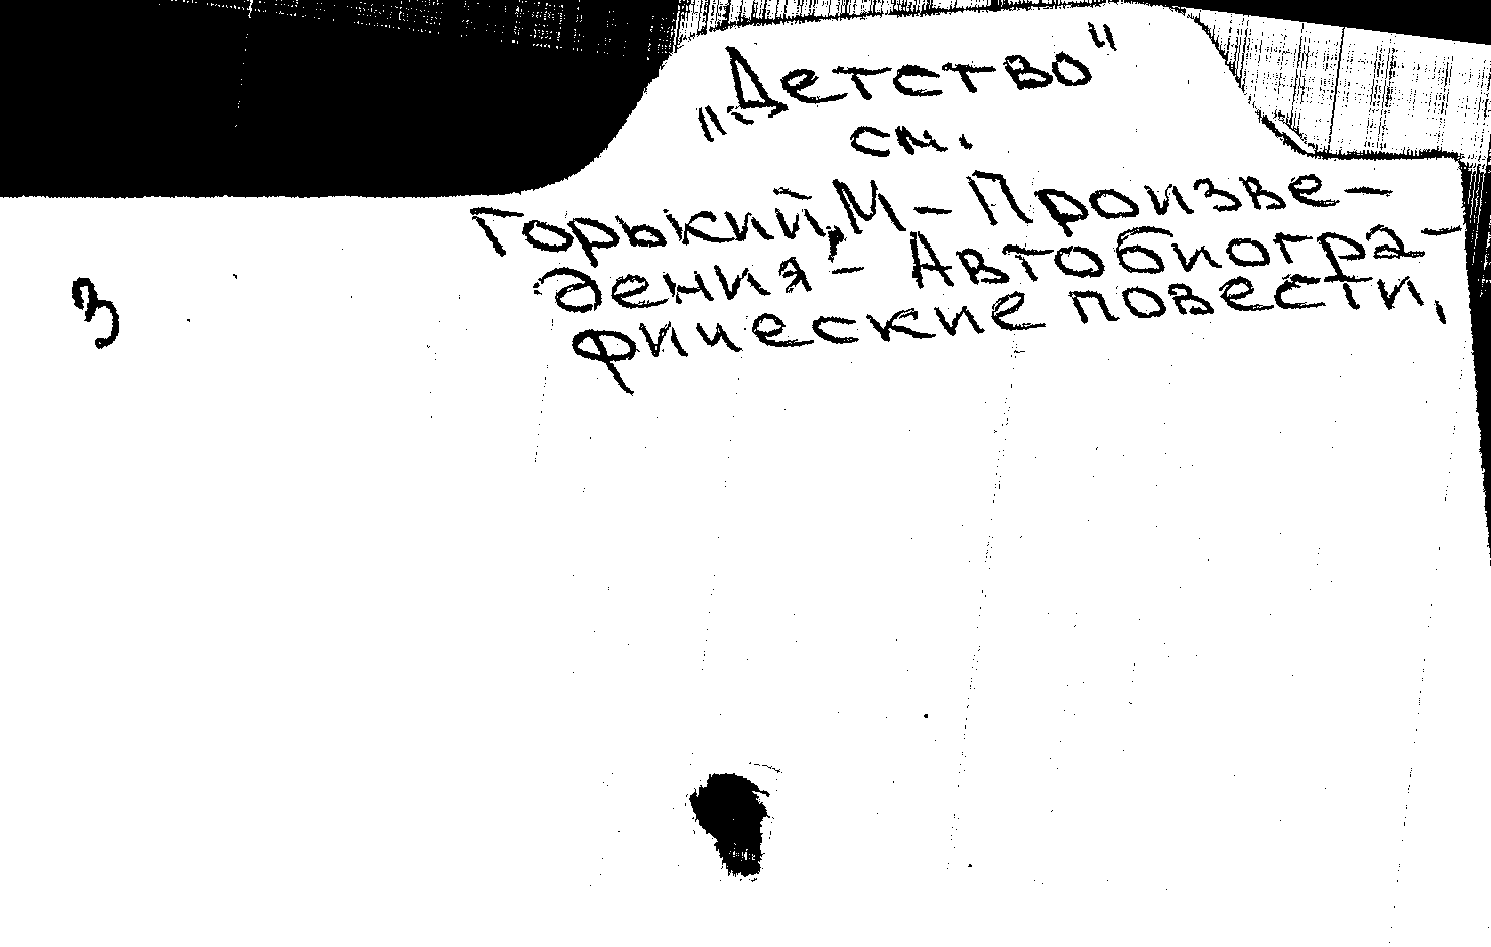 „Детство"
см.
Горький, М – Произве–
дения – Автобиогра–
фические повести,
З